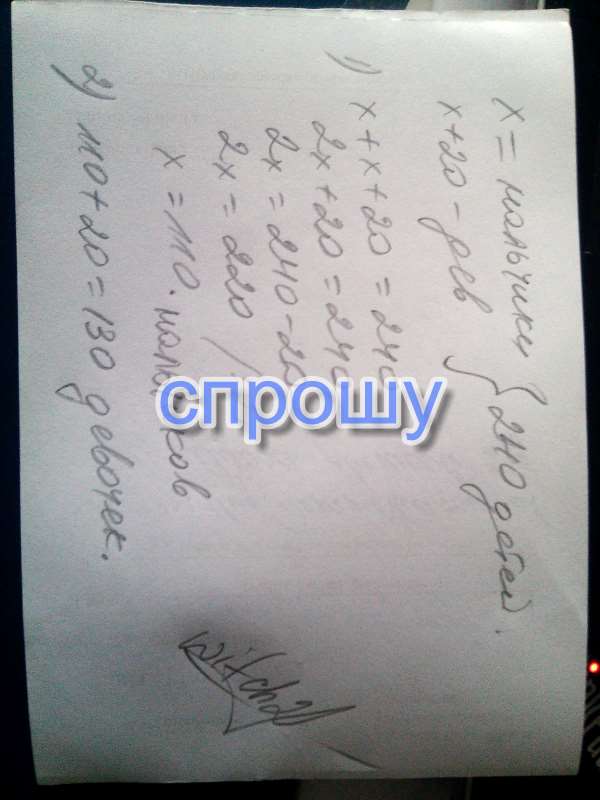 x = мальчики
x+20 - дев } 240 детей.
1) x + x + 20 = 240
2x + 20 = 240
2x = 240 - 20
2x = 220
x = 110. мальчиков
2) 110 + 20 = 130 девочек.
witch21
спрошу